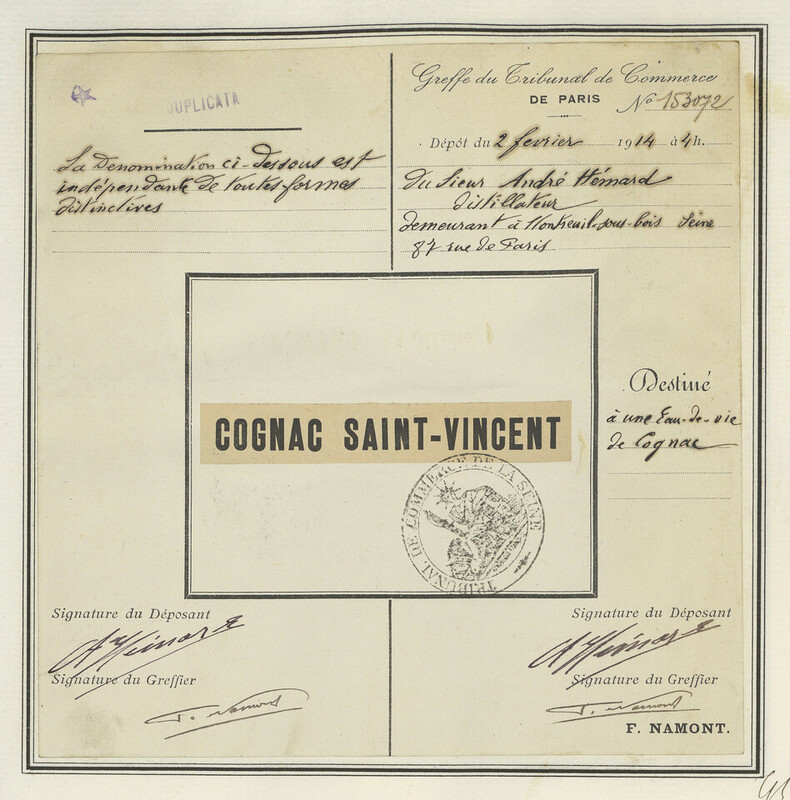 DUPLICATA
La Denomination ci-dessous est
indépendante de toutes formes
distinctives
Greffe du Tribunal de Commerce
DE PARIS
No 153072
Dépôt du 2 fevrier 1914 à 4h.
du Sieur André Hémard
distillateur
demeurant à Montreuil-sous-bois Seine
87 rue de Paris
COGNAC SAINT-VINCENT
TRIBUNAL DE COMMERCE DE LA SEINE
Destiné
à une Eau-de-vie
de Cognac
Signature du Déposant
A Hémard
Signature du Greffier
F. Namont
Signature du Déposant
A Hémard
Signature du Greffier
F. Namont
F. NAMONT.